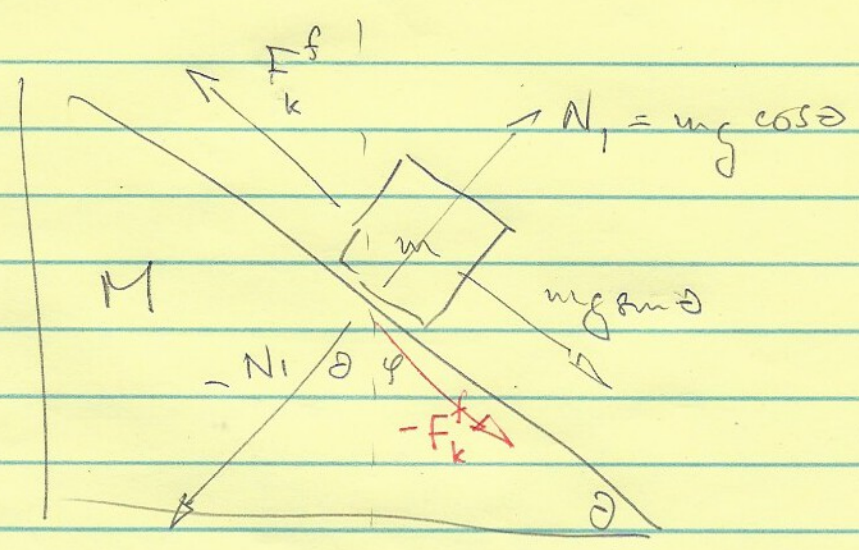 F_k^f
N₁ = mg cosθ
m
M
mg sinθ
- N₁ θ φ
-F_k^f
θ